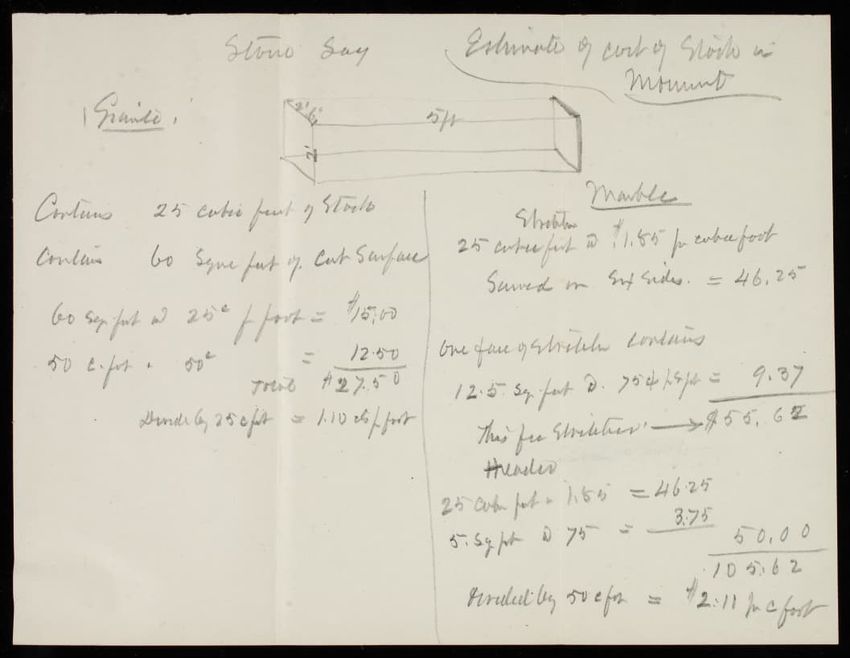 Stone Say
Estimate of cost of Stock in
Monument
Granite.
2' 6"
5 ft
2'
Contains 25 cubic feet of Stock
Contains 60 Sqre feet of Cut Surface
60 Sqr. feet @ 25c p foot = $15.00
50 c. feet . 50c = 12.50
Total $27.50
Divide by 25 c ft = 1.10 cts p foot
Marble
Stretcher
25 cubic feet @ $1.85 pr cubic foot
Sawed on Six Sides. = 46.25
One face of Stretcher contains
12.5. Sq. feet @. 75¢ p Sq ft = 9.37
This for Stretcher → $55.62
Header
25 cubic feet @ 1.85 = 46.25
5. Sq ft @ 75 = 3.75
50.00
105.62
Divided by 50 c ft = $2.11 pr c foot